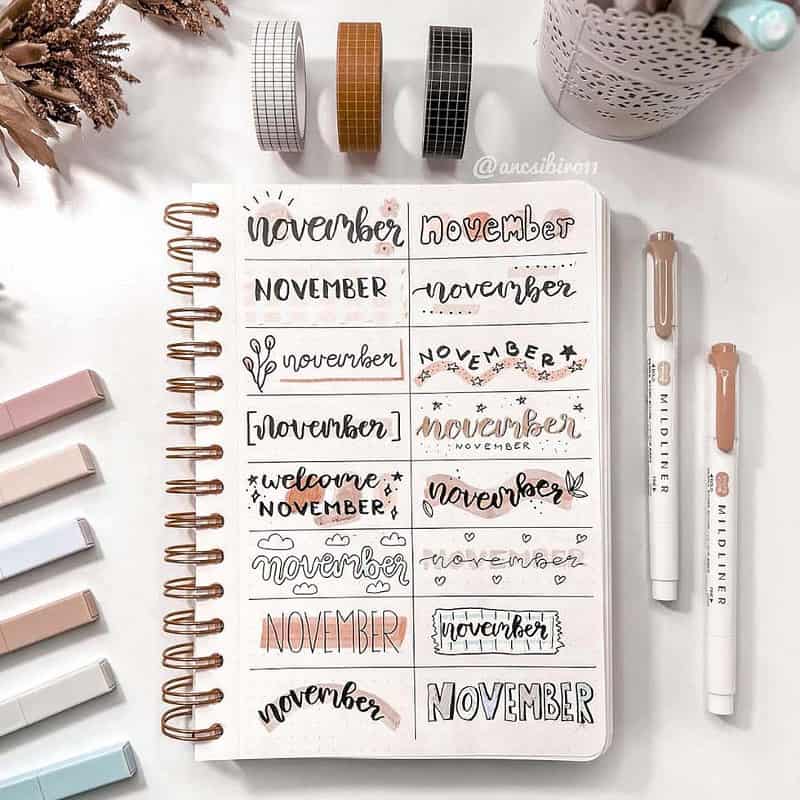 @ancsibiro11
november
november
NOVEMBER
november
november
NOVEMBER
[november]
november
NOVEMBER
welcome
NOVEMBER
november
november
NOVEMBER
november
NOVEMBER
november
november
NOVEMBER
MILDLINER
MILDLINER